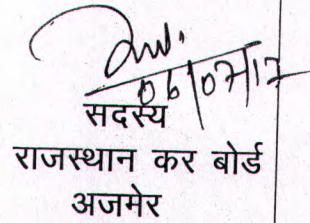 06/07/17
सदस्य
राजस्थान कर बोर्ड
अजमेर